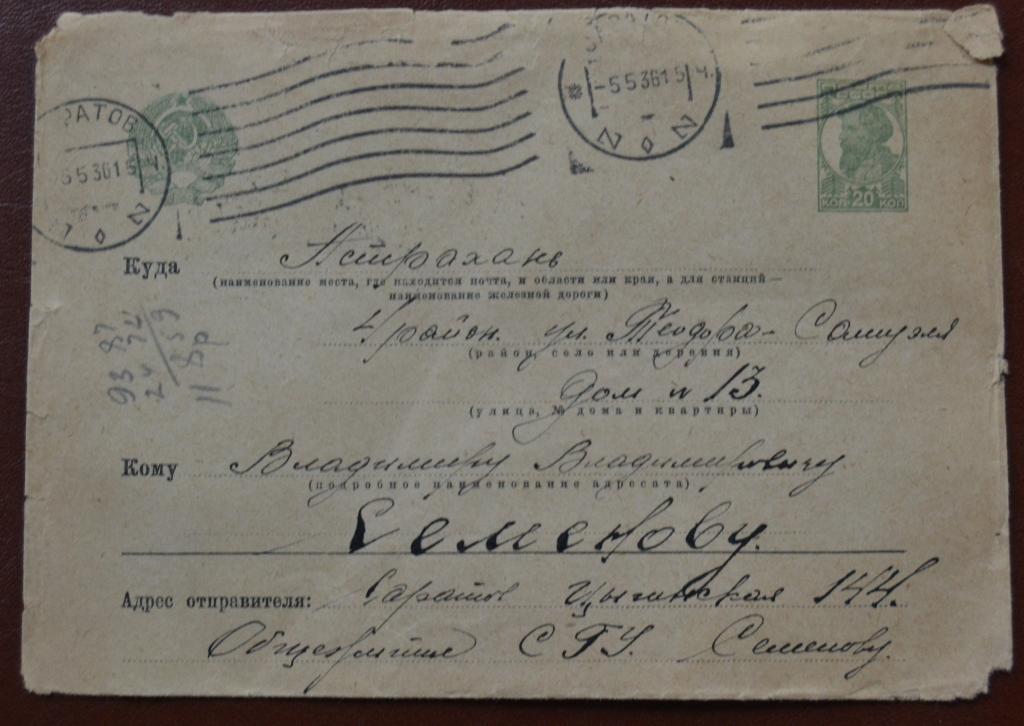 РАТОВ
5 5 36 1 5 Ч
-5 5 36 1 5 Ч.
СССР
КОП 20 КОП
Куда Астрахань
(наименование места, где находится почта, и области или края, а для станций—
наименование железной дороги)
4 район. ул. Теодора- Самуэля
(район, село или деревня)
Дом № 13.
(улица, № дома и квартиры)
93 87
24 74
859
11 вр
Кому Владимиру Владимировичу
(подробное наименование адресата)
Семенову.
Адрес отправителя: Саратов Цыганская 144.
Общежитие СГУ. Семенову.